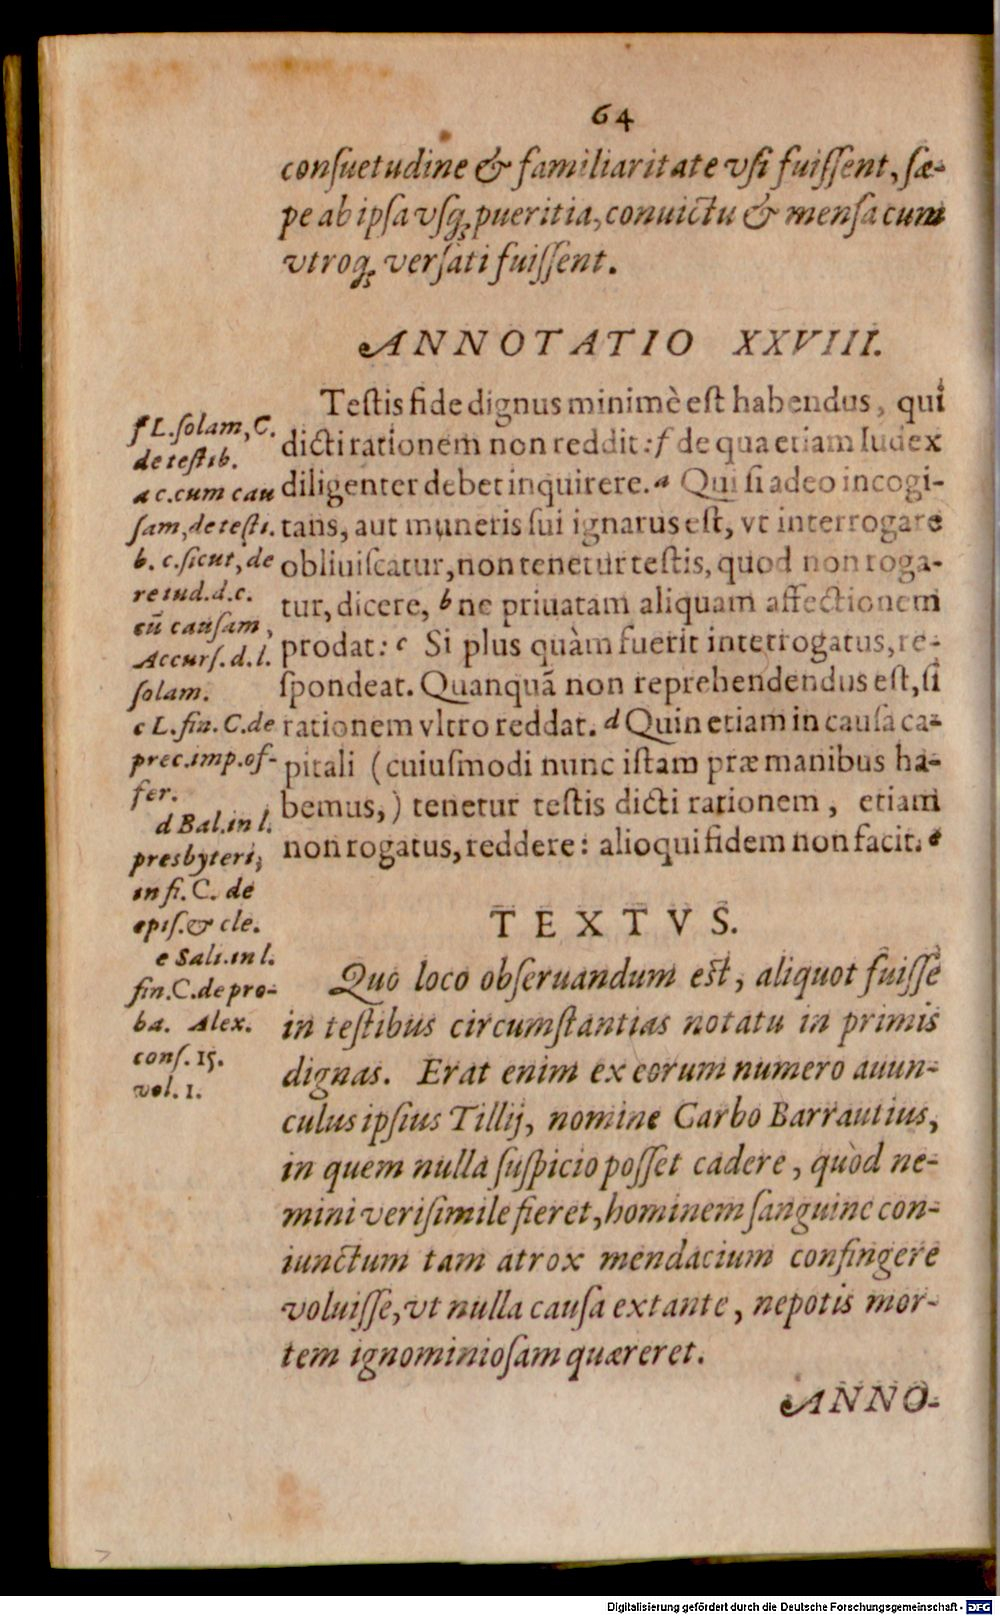 64
conſuetudine & familiaritate vſi fuiſſent, ſæ-
pe ab ipſa vſq́; pueritia, conuictu & menſa cum
vtroq́; verſati fuiſſent.
ANNOTATIO XXVIII.
Teſtis fide dignus minimè eſt habendus, qui
dicti rationem non reddit: f de qua etiam Iudex
diligenter debet inquirere. a Qui ſi adeo incogi-
tans, aut muneris ſui ignarus eſt, vt interrogare
obliuiſcatur, non tenetur teſtis, quod non roga-
tur, dicere, b ne priuatam aliquam affectionem
prodat: c Si plus quàm fuerit interrogatus, re-
ſpondeat. Quanquā non reprehendendus eſt, ſi
rationem vltro reddat. d Quin etiam in cauſa ca-
pitali (cuiuſmodi nunc iſtam præ manibus ha-
bemus,) tenetur teſtis dicti rationem, etiam
non rogatus, reddere: alioqui fidem non facit. e
f L. ſolam, C.
de teſtib.
a c. cum cau
ſam, de teſti.
b. c. ſicut, de
re iud. d. c.
cū cauſam,
Accurſ. d. l.
ſolam.
c L. fin. C. de
prec. imp. of-
fer.
d Bal. in l.
presbyteri,
in fi. C. de
epiſ. & cle.
e Sali. in l.
fin. C. de pro-
ba. Alex.
conſ. 15.
vol. 1.
TEXTVS.
Quo loco obſeruandum eſt, aliquot fuiſſe
in teſtibus circumſtantias notatu in primis
dignas. Erat enim ex eorum numero auun-
culus ipſius Tillij, nomine Carbo Barrautius,
in quem nulla ſuſpicio poſſet cadere, quòd ne-
mini veriſimile fieret, hominem ſanguine con-
iunctum tam atrox mendacium confingere
voluiſſe, vt nulla cauſa extante, nepotis mor-
tem ignominioſam quæreret.
ANNO-
Digitalisierung gefördert durch die Deutsche Forschungsgemeinschaft - DFG